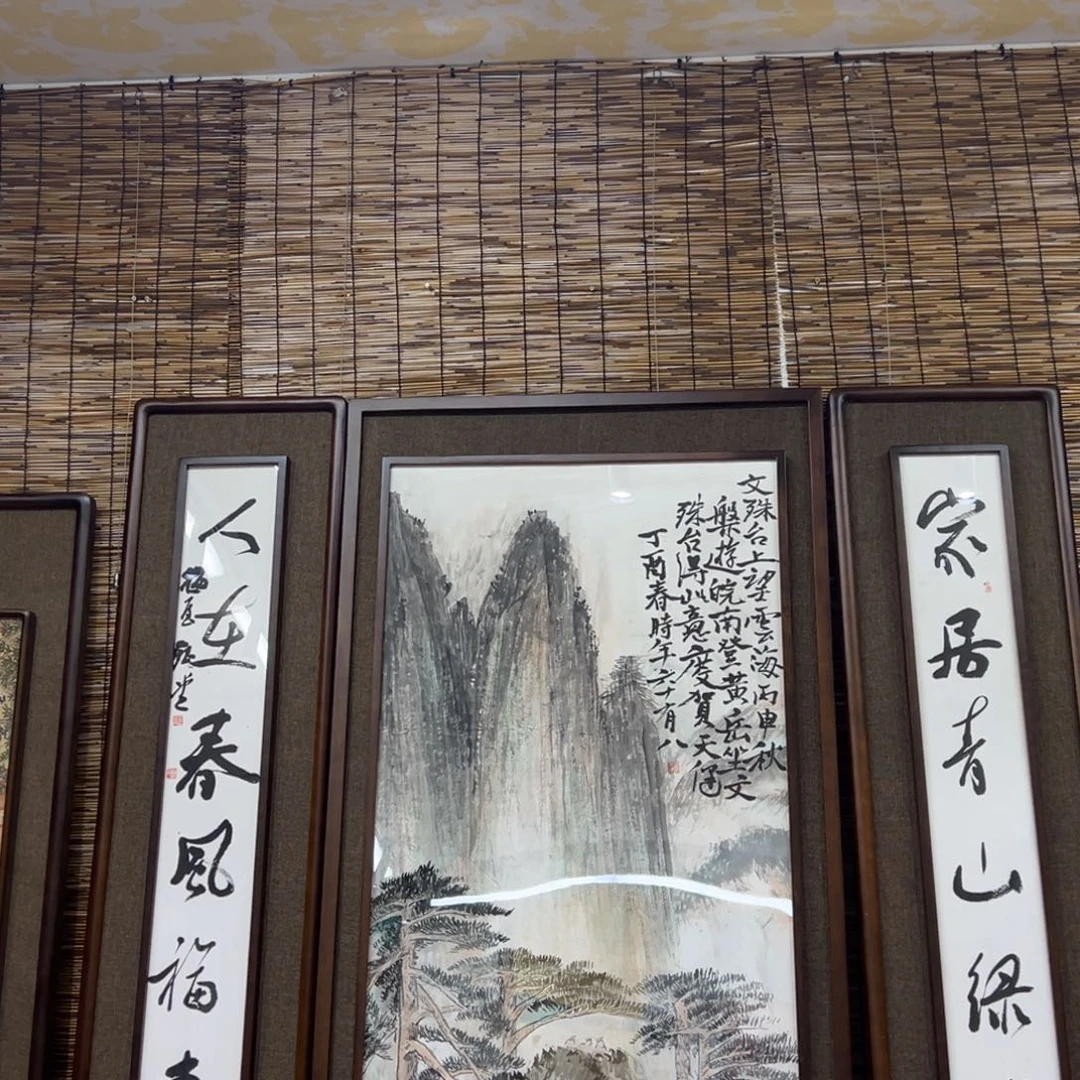 家居青山绿
文殊台上望雲海丙申秋
槃遊皖南登黄岳坐文
殊台得此意慶賀天僊
丁酉春時年六十有八
人在春風福